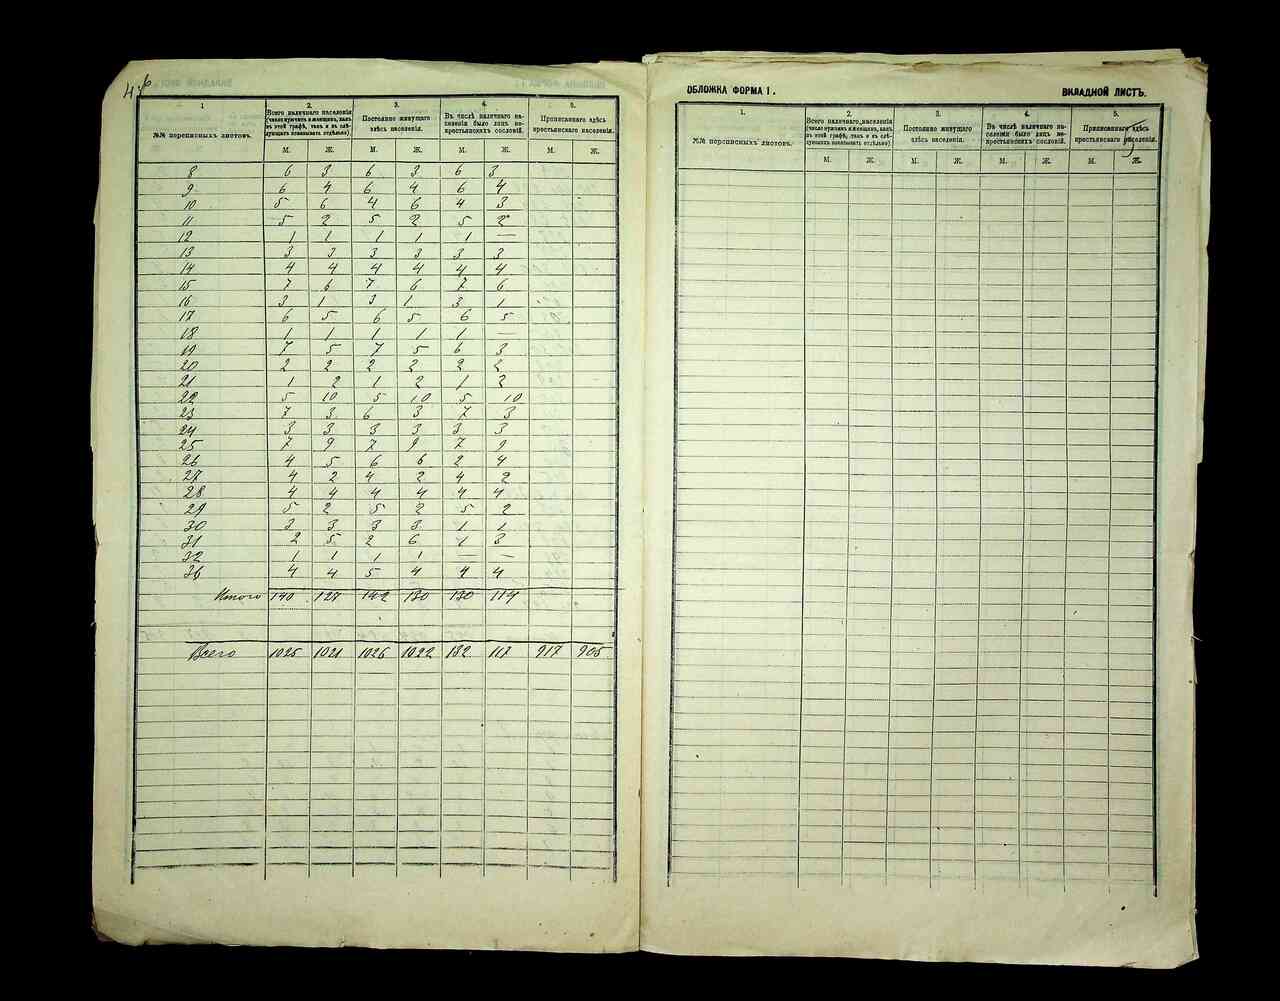 1 2. 3. 4. 5.
№№ переписныхъ листовъ.
Всего наличнаго населенія (число мужчинъ и женщинъ, какъ въ этой графѣ, такъ и въ слѣдующихъ показывать отдѣльно)
Постоянно живущаго здѣсь населенія.
Въ числѣ наличнаго населенія было лицъ некрестьянскихъ сословій.
Приписаннаго здѣсь крестьянскаго населенія.
М. Ж. М. Ж. М. Ж. М. Ж.
8 6 3 6 3 6 3
9 6 4 6 4 6 4
10 5 6 4 6 4 3
11 5 2 5 2 5 2
12 1 1 1 1 1 —
13 3 3 3 3 3 3
14 4 4 4 4 4 4
15 7 6 7 6 7 6
16 3 1 3 1 3 1
17 6 5 6 5 6 5
18 1 1 1 1 1 —
19 7 5 7 5 6 3
20 2 2 2 2 2 2
21 1 2 1 2 1 2
22 5 10 5 10 5 10
23 7 3 6 3 7 3
24 3 3 3 3 3 3
25 7 9 7 9 7 9
26 4 5 6 6 2 4
27 4 2 4 2 4 2
28 4 4 4 4 4 4
29 5 2 5 2 5 2
30 3 3 3 3 1 1
31 2 5 2 6 1 3
32 1 1 1 1 — —
36 4 4 5 4 4 4
Итого 140 127 142 130 130 114
Всего 1025 1021 1026 1022 132 117 917 905
ОБЛОЖКА ФОРМА I. ВКЛАДНОЙ ЛИСТЪ.
5
1. 2. 3. 4. 5.
№№ переписныхъ листовъ.
Всего наличнаго населенія (число мужчинъ и женщинъ, какъ въ этой графѣ, такъ и въ слѣдующихъ показывать отдѣльно)
Постоянно живущаго здѣсь населенія.
Въ числѣ наличнаго населенія было лицъ некрестьянскихъ сословій.
Приписаннаго здѣсь крестьянскаго населенія.
М. Ж. М. Ж. М. Ж. М. Ж.